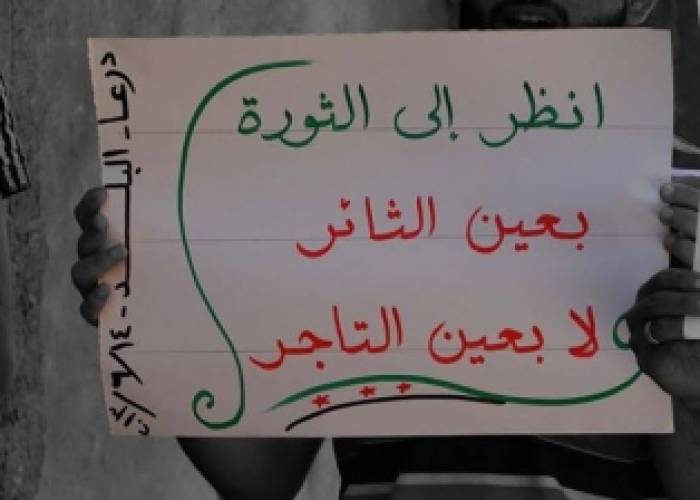 انظر إلى الثورة
بعين الثائر
لا بعين التاجر
درعا - البلد - ١٤/٦/